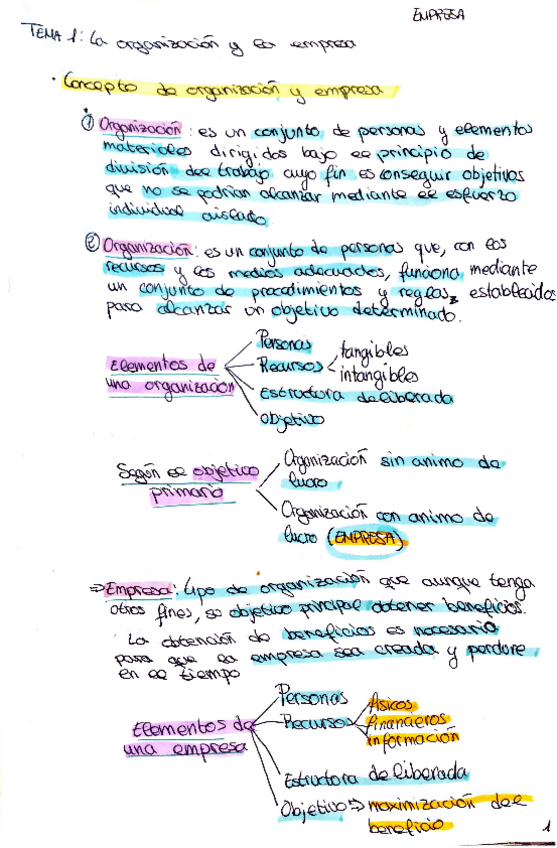 EMPRESA
TEMA 1: La organización y la empresa
· Concepto de organización y empresa
① Organización: es un conjunto de personas y elementos
materiales dirigidos bajo el principio de
división del trabajo cuyo fin es conseguir objetivos
que no se podrían alcanzar mediante el esfuerzo
individual aislado.
② Organización: es un conjunto de personas que, con los
recursos y los medios adecuados, funciona mediante
un conjunto de procedimientos y reglas, establecidos
para alcanzar un objetivo determinado.
Elementos de
una organización
Personas
Recursos
tangibles
intangibles
Estructura deliberada
objetivo
Según el objetivo
primario
Organización sin animo de
lucro
Organización con animo de
lucro (EMPRESA)
⇒ Empresa: tipo de organización que aunque tenga
otros fines, su objetivo principal obtener beneficios.
La obtención de beneficios es necesario
para que la empresa sea creada y perdure
en el tiempo
Elementos de
una empresa
Personas
Recursos
físicos
financieros
información
Estructura deliberada
Objetivo ⇒ maximización del
beneficio
1